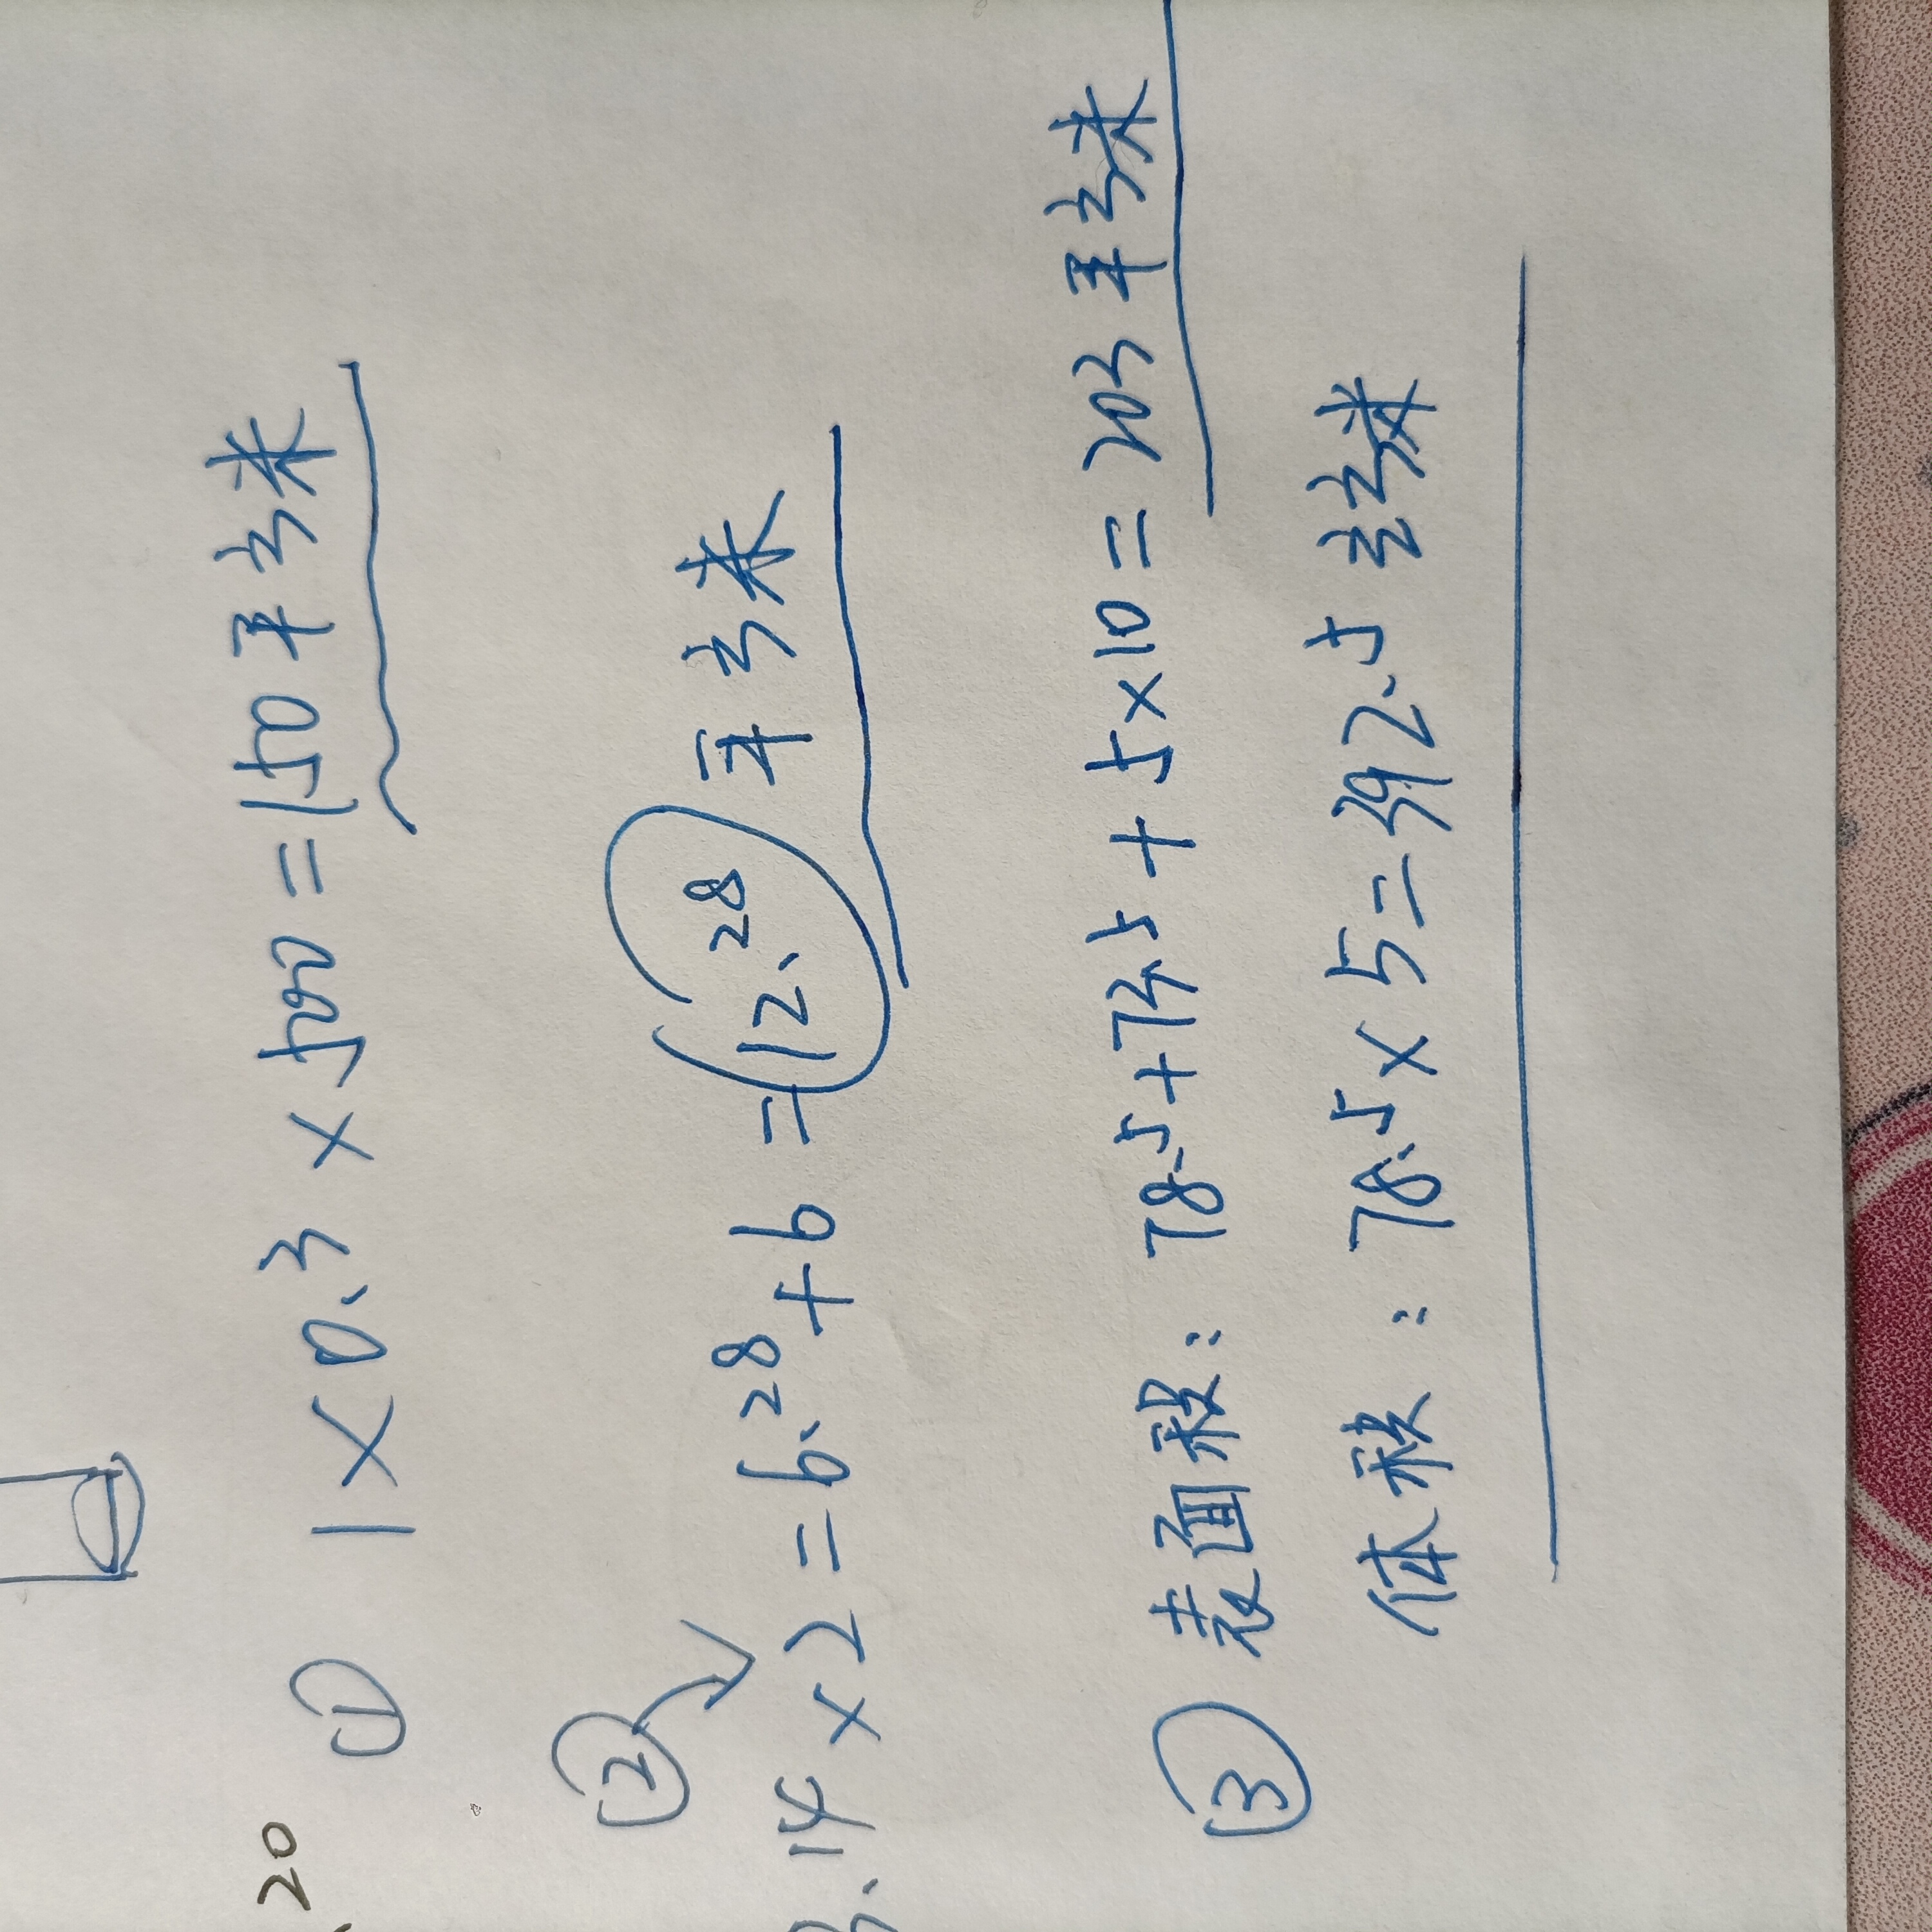 ① 1×0.3×500=150平方米
②
3.14×2=6.28+6=12.28平方米
③ 表面积：78.5+73.5+5×10=203平方米
体积：78.5×5=392.5立方米
20